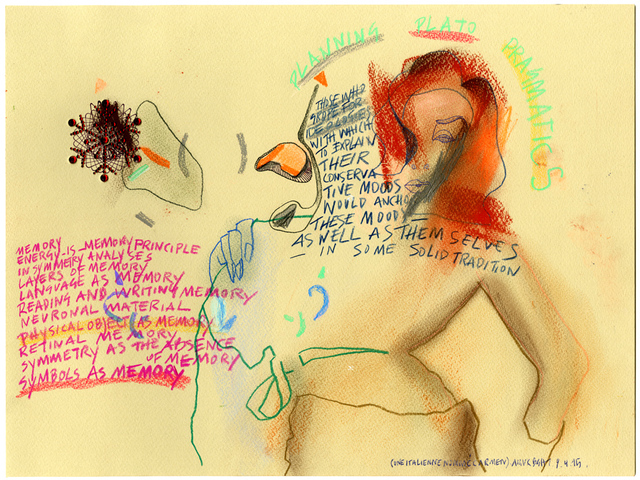 PLANNING
PLATO
PRAGMATICS
THOSE WHO
GROPE FOR
IDEOLOGIES
WITH WHICH
TO EXPLAIN
THEIR
CONSERVA
TIVE MOODS
WOULD ANCHOR
THESE MOODS
AS WELL AS THEMSELVES
IN SOME SOLID TRADITION
MEMORY
ENERGY IS MEMORY PRINCIPLE
IN SYMMETRY ANALYSES
LAYERS OF MEMORY
LANGUAGE AS MEMORY
READING AND WRITING MEMORY
NEURONAL MATERIAL
PHYSICAL OBJECT AS MEMORY
RETINAL MEMORY
SYMMETRY AS THE ABSENCE
OF MEMORY
SYMBOLS AS MEMORY